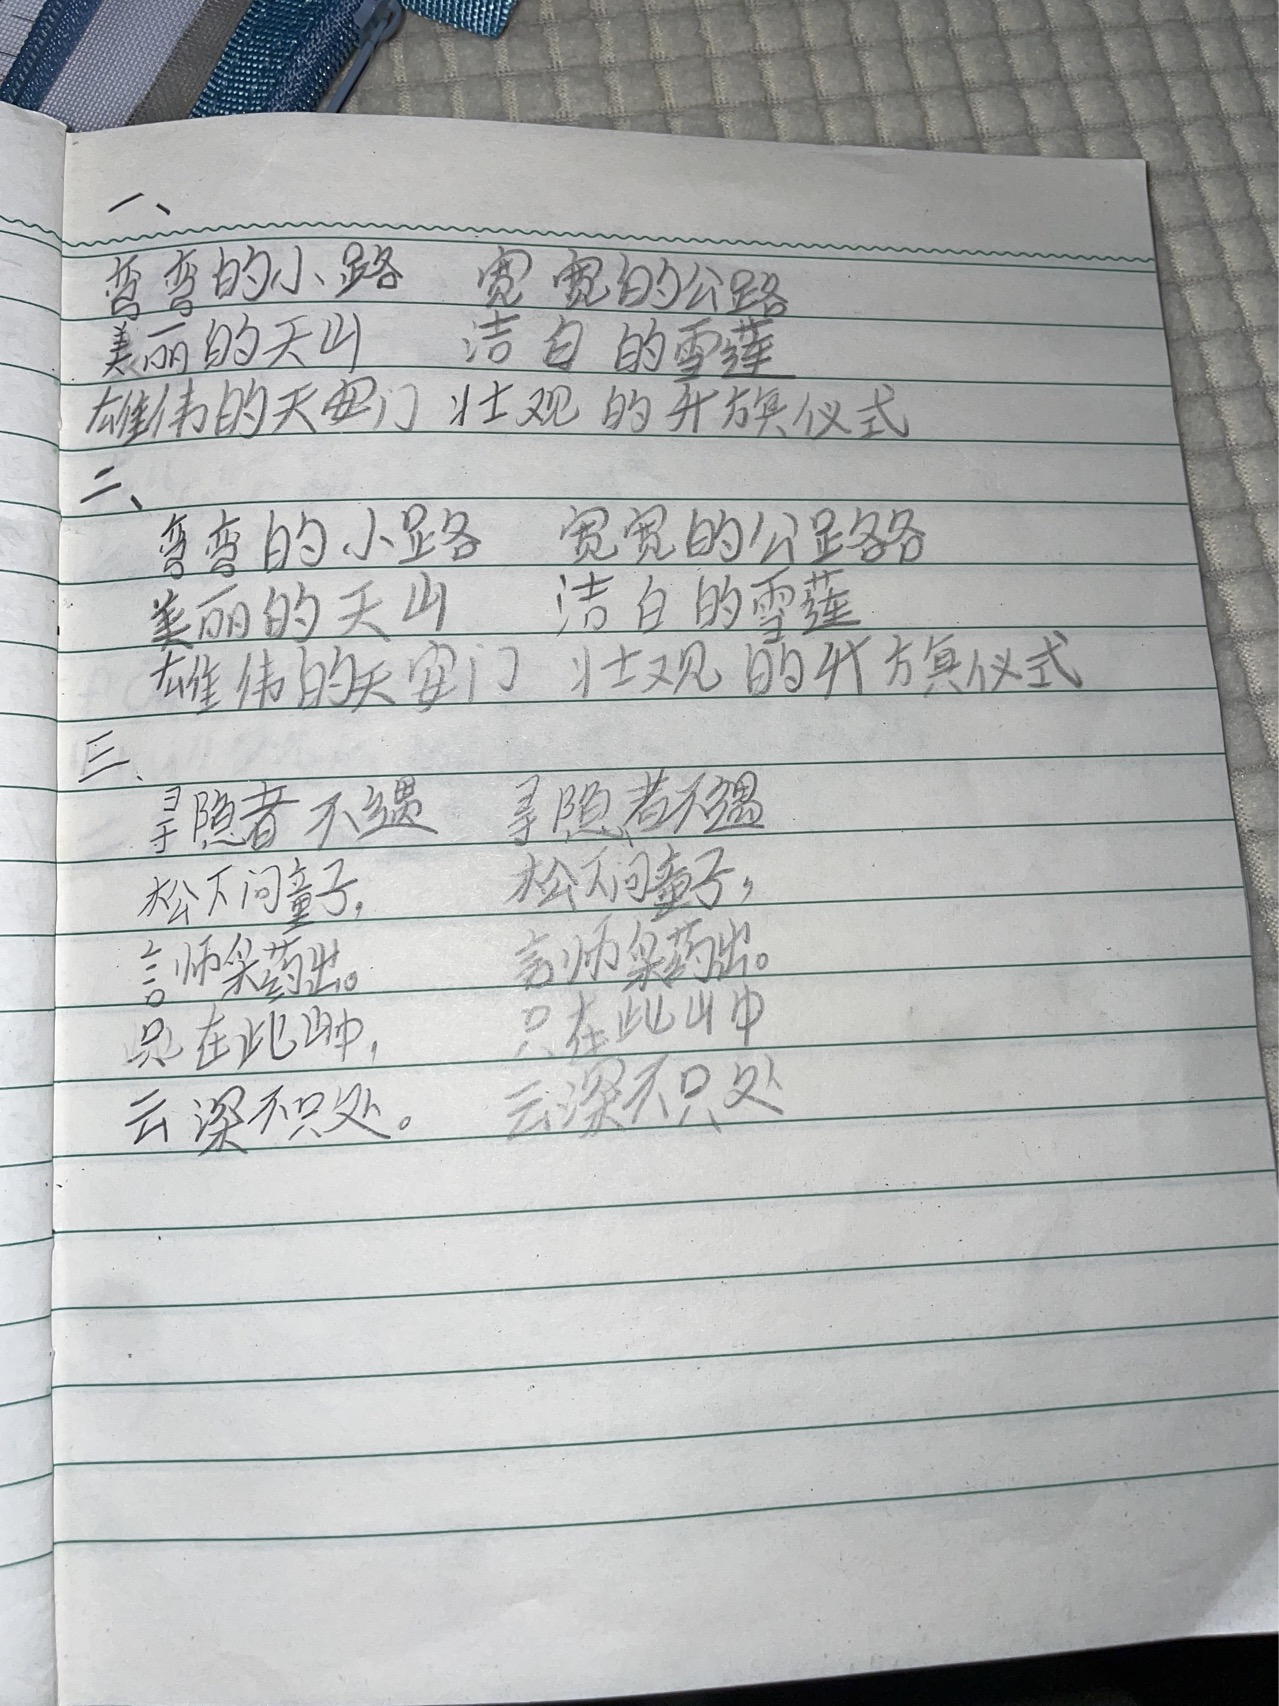 一、
弯弯的小路 宽宽的公路
美丽的天山 洁白的雪莲
雄伟的天安门 壮观的升旗仪式
二、
弯弯的小路 宽宽的公路
美丽的天山 洁白的雪莲
雄伟的天安门 壮观的升旗仪式
三、
寻隐者不遇 寻隐者不遇
松下问童子, 松下问童子,
言师采药出。 言师采药出。
只在此山中, 只在此山中
云深不只处。 云深不只处